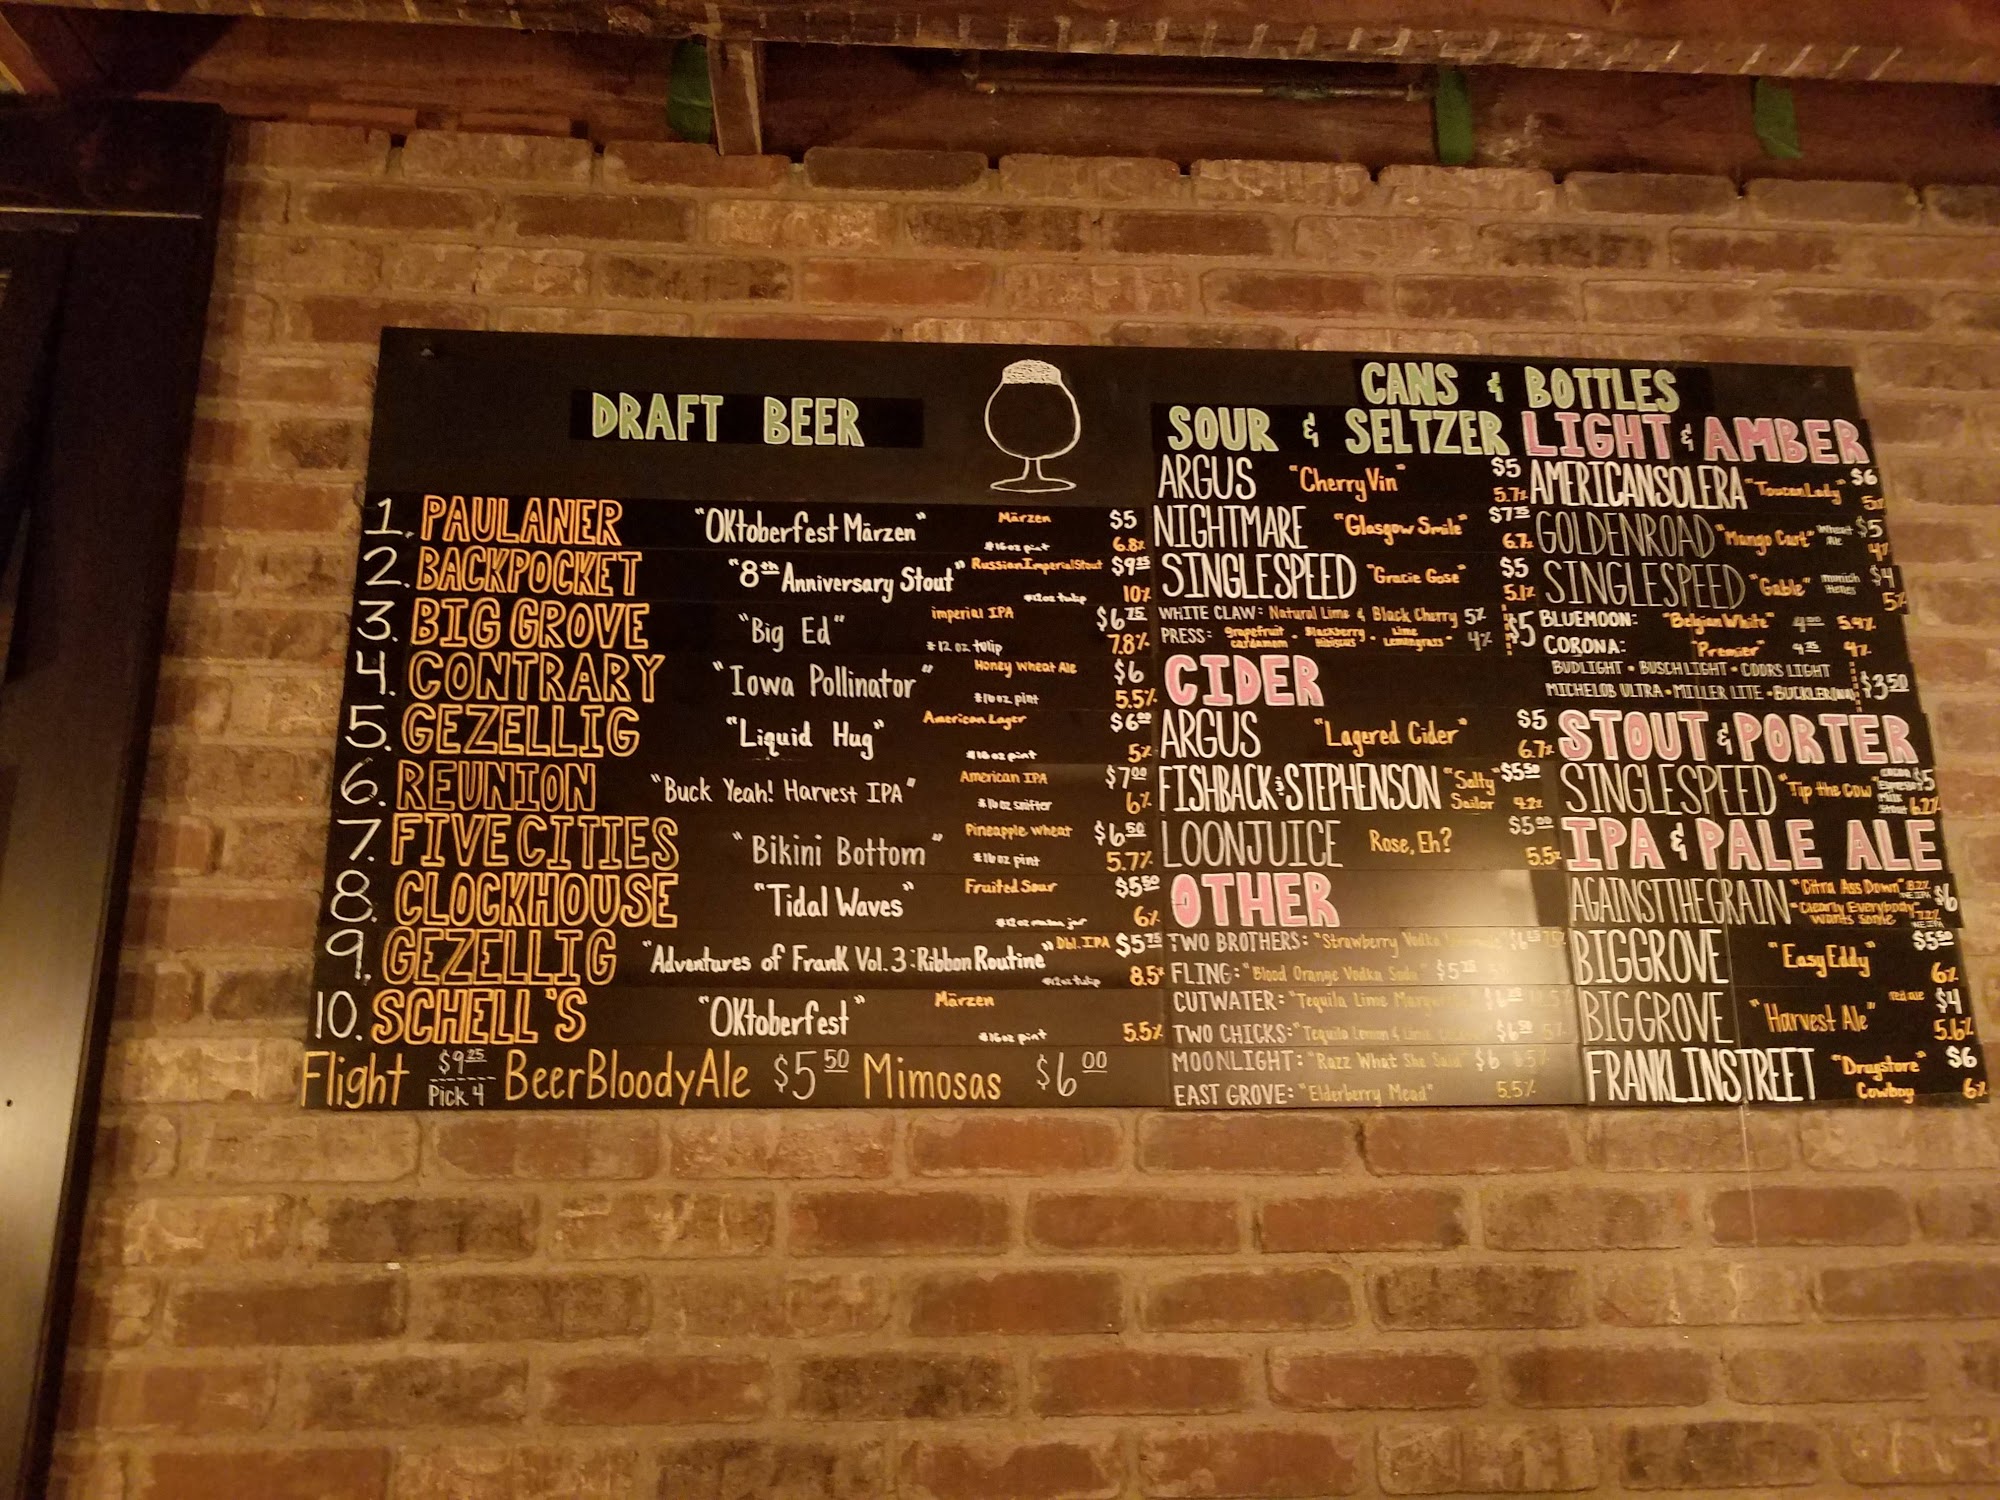 DRAFT BEER
1. PAULANER "OKtoberfest Märzen" Märzen $5
*16oz pint 6.8%
2. BACKPOCKET "8th Anniversary Stout" Russian Imperial Stout
*12oz tulip 10%
3. BIG GROVE "Big Ed" imperial IPA $6.75
*12 oz tulip 7.8%
4. CONTRARY "Iowa Pollinator" Honey Wheat Ale $6
*16oz pint 5.5%
5. GEZELLIG "Liquid Hug" American Lager $6.00
*16oz pint 5%
6. REUNION "Buck Yeah! Harvest IPA" American IPA $7.00
*16oz snifter 6%
7. FIVE CITIES "Bikini Bottom" Pineapple Wheat $6.50
*16oz pint 5.7%
8. CLOCKHOUSE "Tidal Waves" Fruited Sour $5.50
*12oz mason jar 6%
9. GEZELLIG "Adventures of Frank Vol. 3: Ribbon Routine" Dbl. IPA $5.75
*12oz tulip 8.5%
10. SCHELL'S "OKtoberfest" Märzen
*16oz pint 5.5%
Flight $9.25 Pick 4 BeerBloodyAle $5.50 Mimosas $6.00
CANS & BOTTLES
SOUR & SELTZER
ARGUS "CherryVin" $5
5.7%
NIGHTMARE "Glasgow Smile"
6.7%
SINGLESPEED "Gracie Gose" $5
5.1%
WHITE CLAW: Natural Lime & Black Cherry 5%
PRESS: grapefruit cardamom • Blackberry Hibiscus • Lime Lemongrass • 4% $5
CIDER
ARGUS "Lagered Cider" $5
6.7%
FISHBACK & STEPHENSON "Salty Sailor" $5.50
4.2%
LOONJUICE Rose, Eh? $5.00
5.5%
OTHER
TWO BROTHERS: "Strawberry Vodka
FLING: "Blood Orange Vodka Soda"
CUTWATER: "Tequila Lime
TWO CHICKS: "Tequila Lemon &
MOONLIGHT: "Razz What She Said" $6
EAST GROVE: "Elderberry Mead" 5.5%
LIGHT & AMBER
AMERICANSOLERA "Toucan Lady" $6
5%
GOLDENROAD "Mango Cart" Wheat Ale $5
4%
SINGLESPEED "Gable" Munich Helles $4
5%
BLUEMOON: "Belgian White" 5.4%
CORONA: "Premier" 4%
BUDLIGHT • BUSCH LIGHT • COORS LIGHT
MICHELOB ULTRA • MILLER LITE • BUCKLER(NA) $3.50
STOUT & PORTER
SINGLESPEED "Tip the Cow" Espresso Milk Stout $5
6.2%
IPA & PALE ALE
AGAINSTTHEGRAIN "Citra Ass Down" 8.2% NE IPA $6
"Clearly Everybody wants some" 7.2% NE IPA
BIGGROVE "Easy Eddy" $5.50
6%
BIGGROVE "Harvest Ale" red ale $4
5.6%
FRANKLINSTREET "Drugstore Cowboy" $6
6%